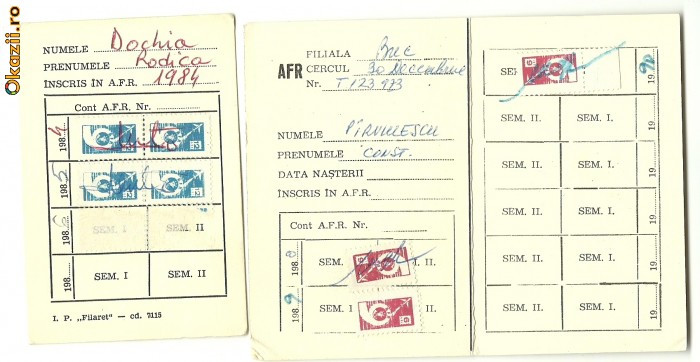 Okazii.ro
NUMELE Dochia
PRENUMELE Rodica
ÎNSCRIS ÎN A.F.R. 1984
Cont A.F.R. Nr.
1984
1985
198 SEM. I SEM. II
198 SEM. I SEM. II
I. P. „Filaret” — cd. 7115
AFR
FILIALA Buc
CERCUL 30 Decembrie
Nr. T123973
NUMELE PÎRVULESCU
PRENUMELE CONST.
DATA NAȘTERII
ÎNSCRIS ÎN A.F.R.
Cont A.F.R. Nr.
198 I. II.
1989 SEM. I II.
SEM. 1990
SEM. II. SEM. I. 19
SEM. II. SEM. I. 19
SEM. II. SEM. I. 19
SEM. II. SEM. I. 19
SEM. II. SEM. I. 19